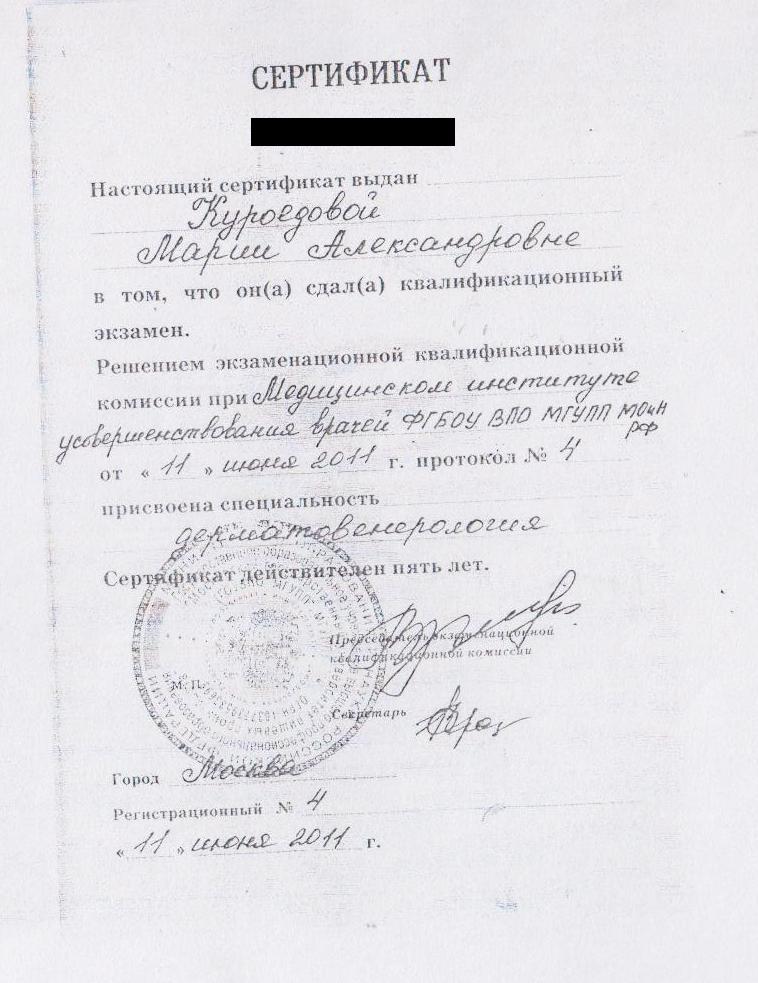 СЕРТИФИКАТ
Настоящий сертификат выдан
Куроедовой
Марии Александровне
в том, что он(а) сдал(а) квалификационный
экзамен.
Решением экзаменационной квалификационной
комиссии при Медицинском институте
усовершенствования врачей ФГБОУ ВПО МГУПП МОиН
РФ
от « 11 » июня 2011 г. протокол № 4
присвоена специальность
дерматовенерология
Сертификат действителен пять лет.
Председатель экзаменационной
квалификационной комиссии
М. П.
Секретарь
Город Москва
Регистрационный № 4
« 11 » июня 2011 г.